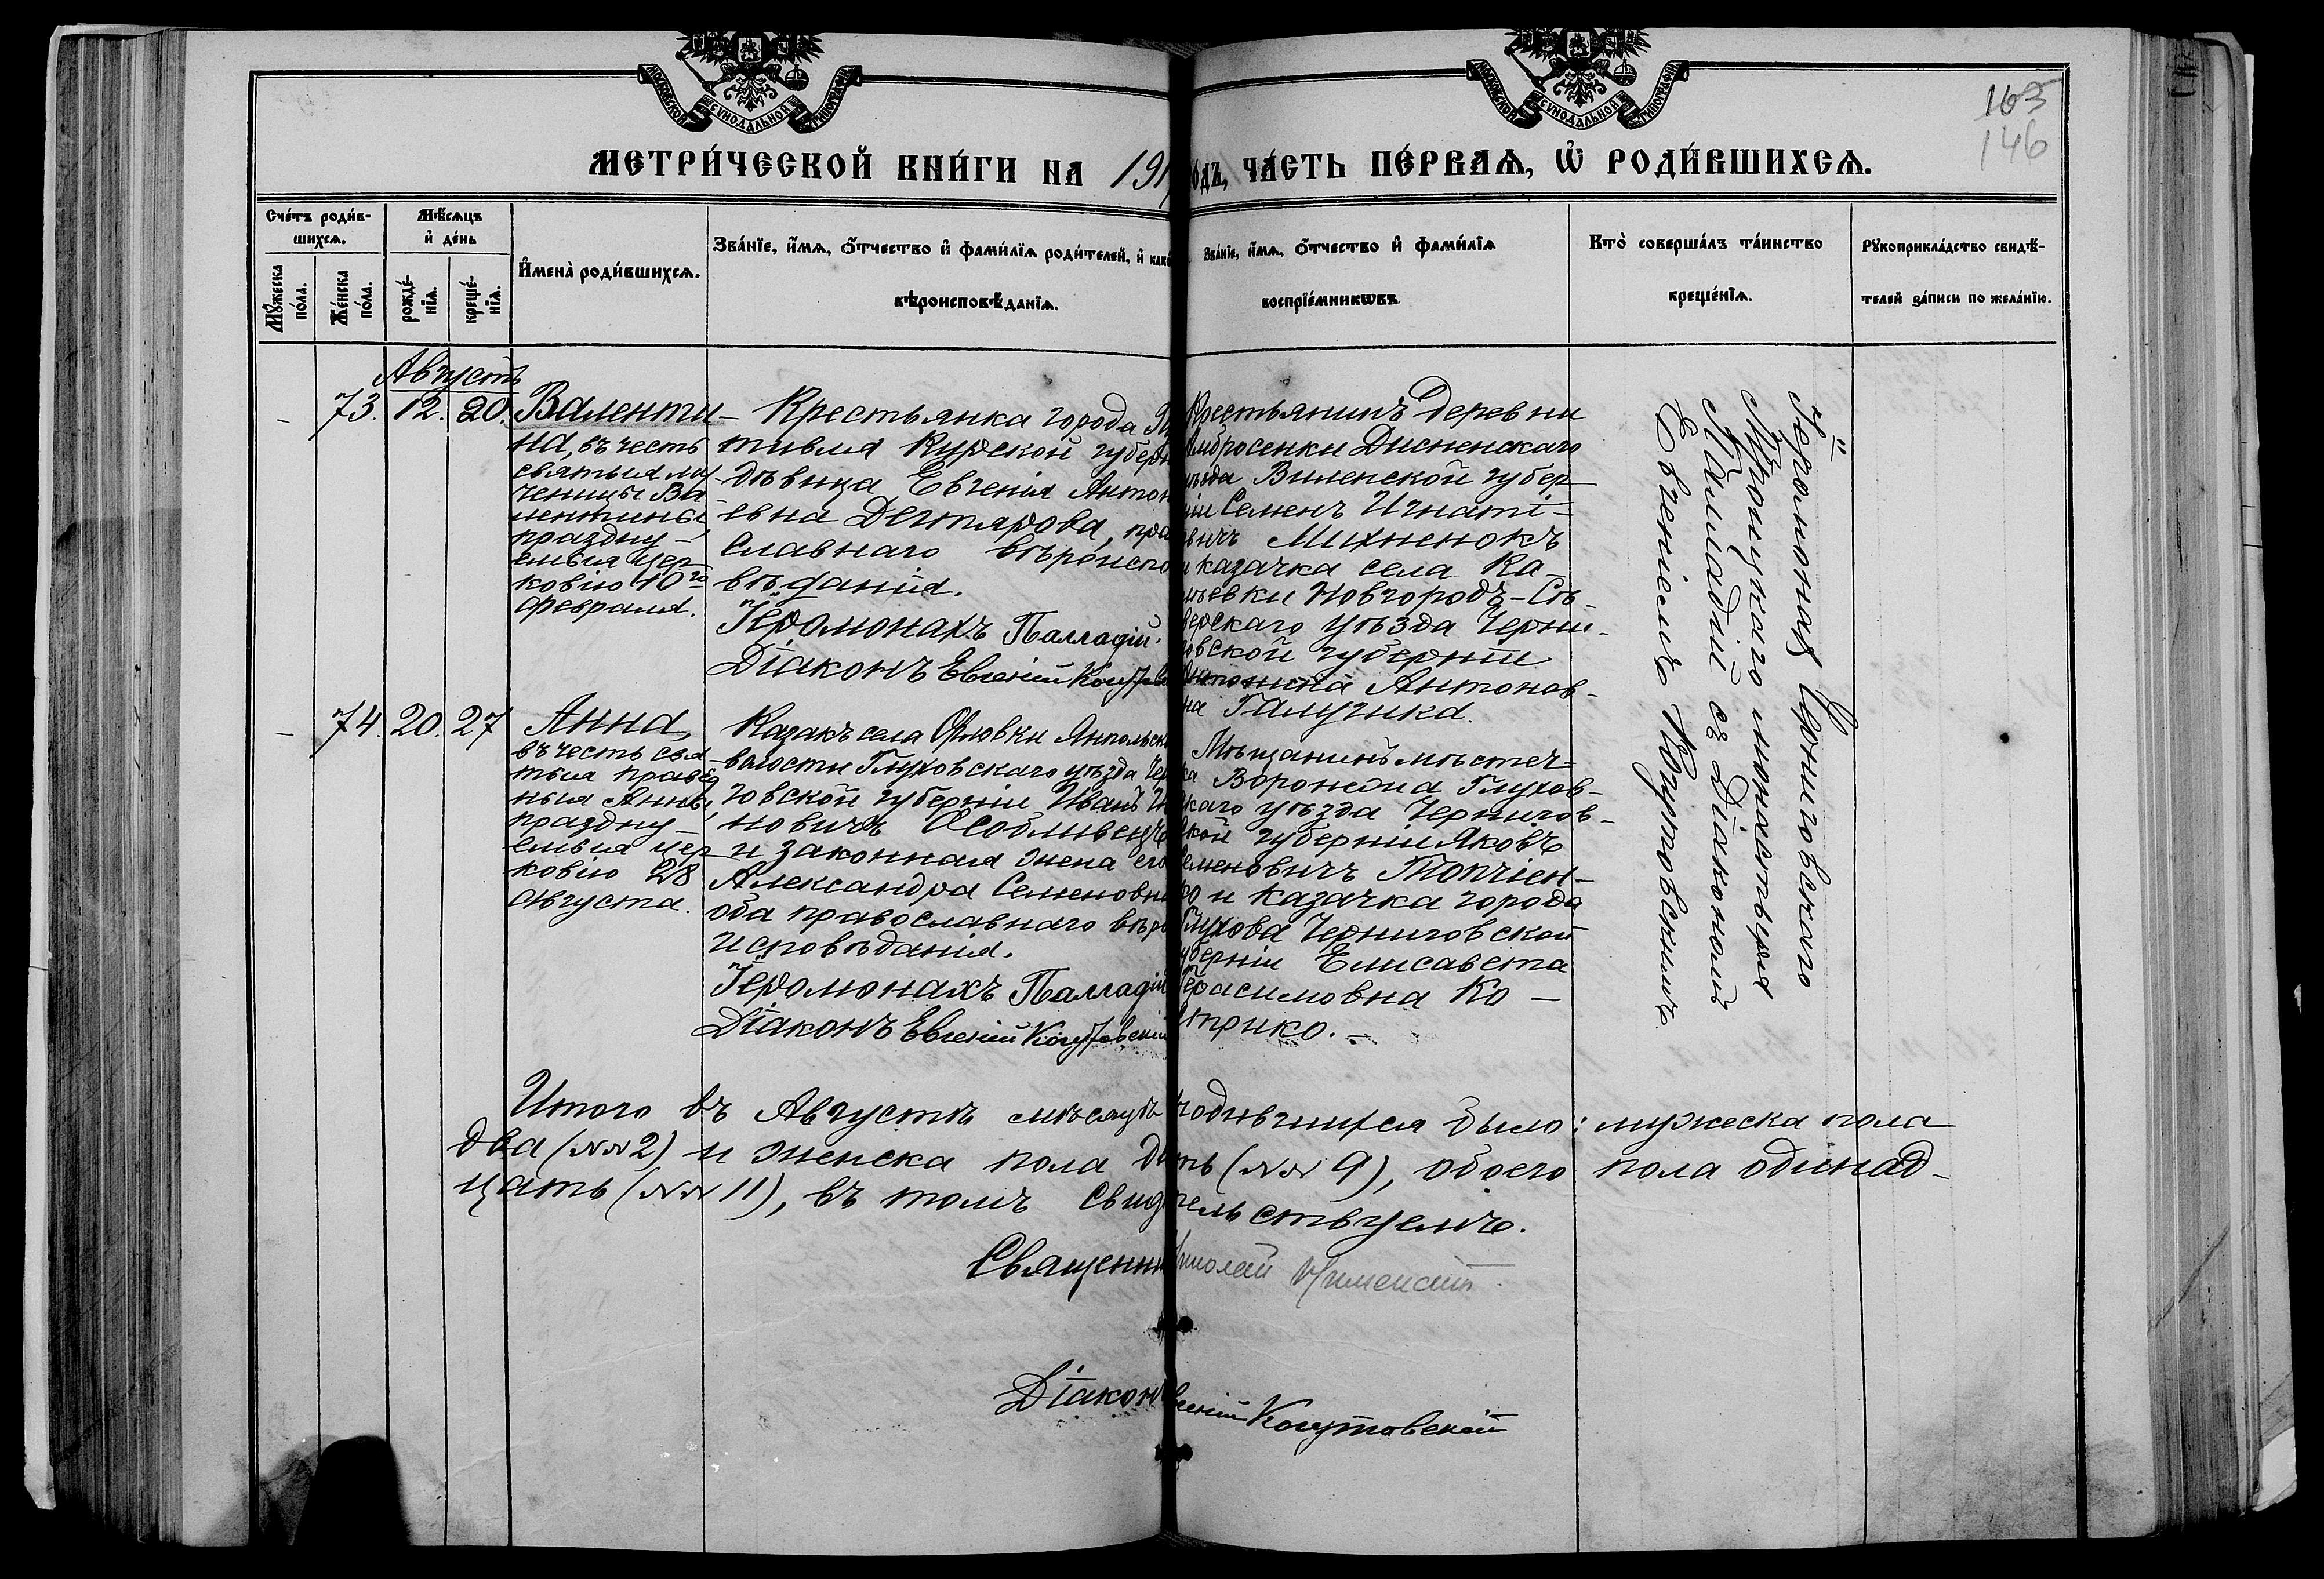 МОСКОВСКОЙ СУНОДАЛЬНОЙ ТИПОГРАФІИ
МОСКОВСКОЙ СУНОДАЛЬНОЙ ТИПОГРАФІИ
163
146
МЕТРИ́ЧЕСКОЙ КНИ́ГИ НА 191
одъ, ЧА́СТЬ ПЕ́РВАѦ, Ѡ РОДИ́ВШИХСѦ.
Сче́тъ роди́в-
шихсѧ.
Мꙋ́жеска по́ла.
Же́нска по́ла.
Мѣ́сѧцъ
и҆ де́нь
рожде́-
нїѧ.
креще́-
нїѧ.
И҆мена̀ роди́вшихсѧ.
Зва́нїе, и҆́мѧ, ѻ҆́тчество и҆ фами́лїѧ роди́телей, и҆ како
вѣроисповѣ́данїѧ.
Зва́нїе, и҆́мѧ, ѻ҆́тчество и҆ фами́лїѧ
воспрїе́мникѡвъ.
Кто̀ соверша́лъ та́инство
креще́нїѧ.
Рꙋкоприкла́дство свидѣ́-
телей за́писи по жела́нїю.
Августъ
– 73. 12. 20.
Валенти-
на, въ честь
святыя му-
ченицы Ва-
лентины,
праздну-
емыя цер-
ковію 10го
февраля.
Крестьянка города Пу
тивля Курской губерн
дѣвица Евгенія Антон
евна Дегтярова, пра
славнаго вѣроиспо
вѣданія.
Іеромонахъ Палладій.
Діаконъ Евгеній
Крестьянинъ деревни
Амбросенки Дисненскаго
уѣзда Виленской губер-
ніи Семенъ Игнаті-
евичъ Михненокъ
и казачка села Ка-
Новгородъ-Сѣ-
верскаго уѣзда Черни-
говской губерніи
Антонина Антонов-
на Галушка.
– 74. 20. 27
Анна,
въ честь свя-
тыя правед
ныя Анны,
праздну-
емыя цер-
ковію 28
августа.
Казакъ села Орловки Ямпольск
волости Глуховскаго уѣзда Чер
говской губерніи Иванъ И
новичъ Особливецъ
и законная жена его
Александра Семеновн
оба православнаго вѣро
исповѣданія.
Іеромонахъ Палладій
Діаконъ Евгеній
Мѣщанинъ мѣстеч-
ка Воронежа Глухов-
скаго уѣзда Чернигов-
ской губерніи Яковъ
Семеновичъ Топчіен-
ко и казачка города
Глухова Черниговской
губерніи Елисавета
Герасимовна Ко-
Іеромонахъ Черниговскаго
Троицкаго монастыря
Палладій съ Діакономъ
Евгеніемъ
Итого въ Августѣ мѣсяцѣ родившихся было: мужеска пола
два (№№ 2) и женска пола д ть (№№ 9), обоего пола одинад-
цать (№№ 11), въ томъ свид тельствуемъ.
Священни Николай
Діаконъ Евгеній